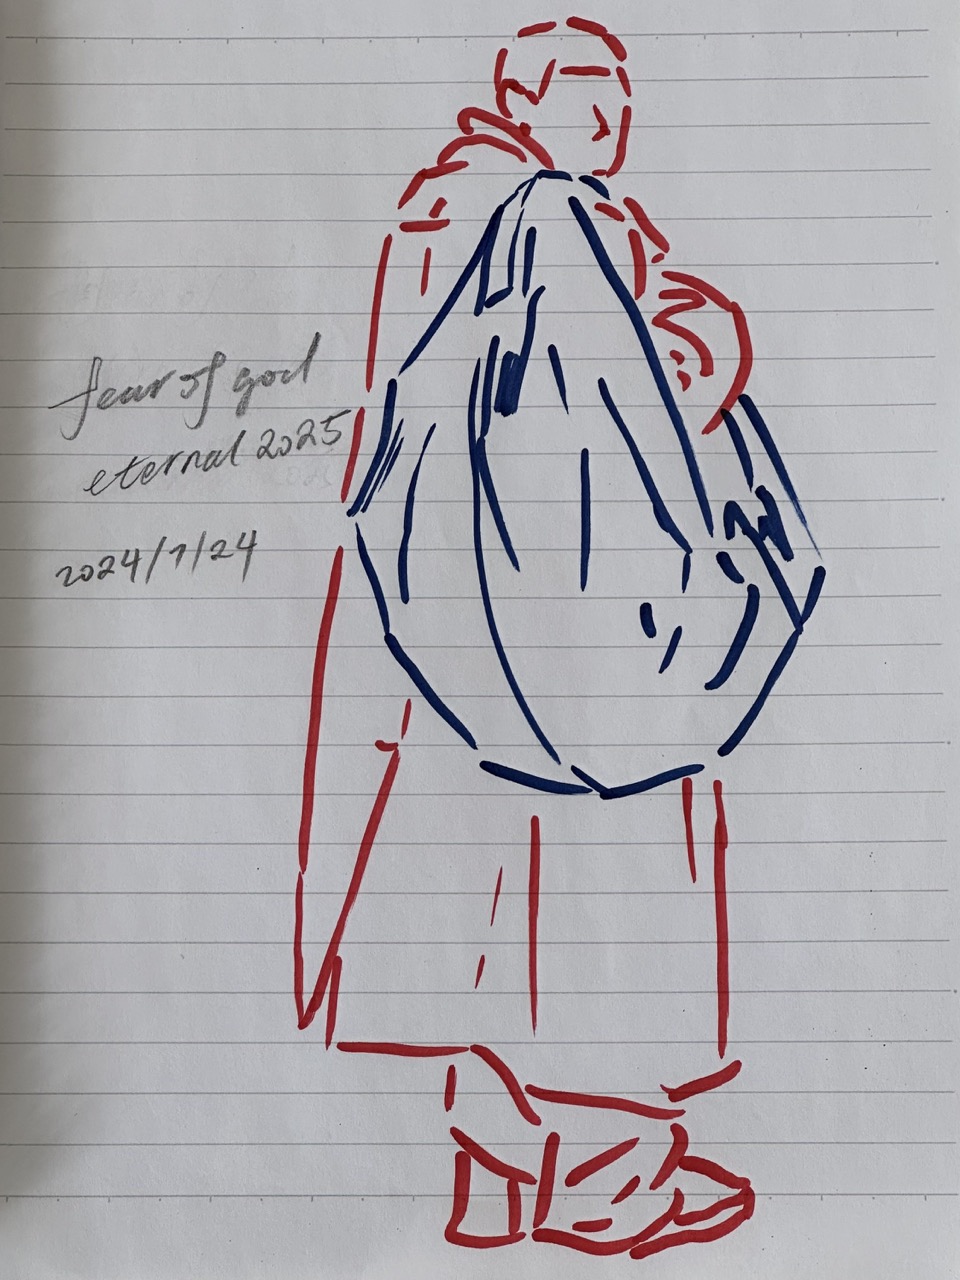 fear of god
eternal 2025
2024/7/24